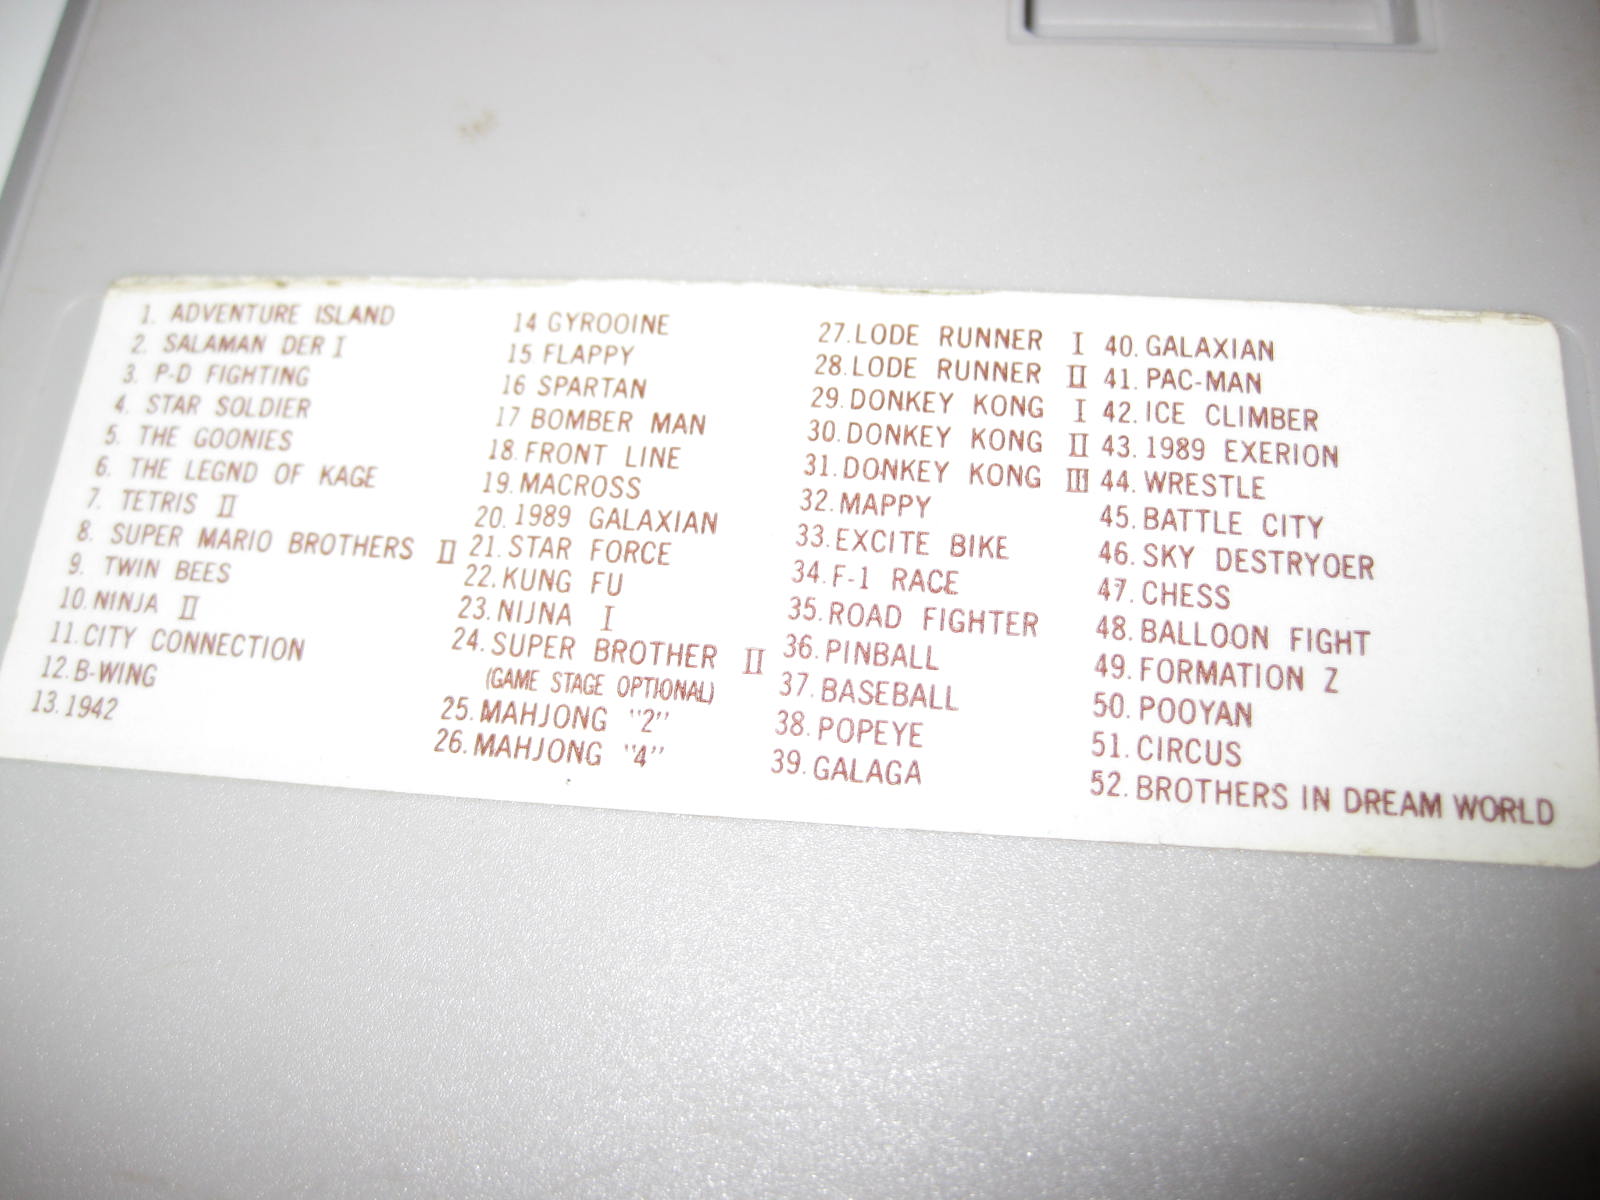 1. ADVENTURE ISLAND
2. SALAMAN DER I
3. P-D FIGHTING
4. STAR SOLDIER
5. THE GOONIES
6. THE LEGND OF KAGE
7. TETRIS II
8. SUPER MARIO BROTHERS II
9. TWIN BEES
10. NINJA II
11. CITY CONNECTION
12. B-WING
13. 1942
14 GYROOINE
15 FLAPPY
16 SPARTAN
17 BOMBER MAN
18. FRONT LINE
19. MACROSS
20. 1989 GALAXIAN
21. STAR FORCE
22. KUNG FU
23. NIJNA I
24. SUPER BROTHER II
(GAME STAGE OPTIONAL)
25. MAHJONG "2"
26. MAHJONG "4"
27. LODE RUNNER I
28. LODE RUNNER II
29. DONKEY KONG I
30. DONKEY KONG II
31. DONKEY KONG III
32. MAPPY
33. EXCITE BIKE
34. F-1 RACE
35. ROAD FIGHTER
36. PINBALL
37. BASEBALL
38. POPEYE
39. GALAGA
40. GALAXIAN
41. PAC-MAN
42. ICE CLIMBER
43. 1989 EXERION
44. WRESTLE
45. BATTLE CITY
46. SKY DESTRYOER
47. CHESS
48. BALLOON FIGHT
49. FORMATION Z
50. POOYAN
51. CIRCUS
52. BROTHERS IN DREAM WORLD